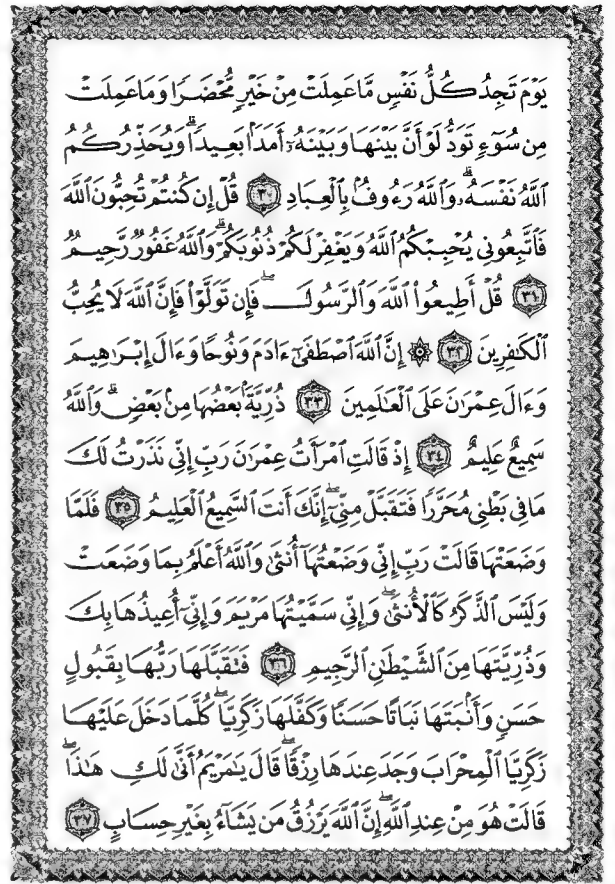 يَوْمَ تَجِدُ كُلُّ نَفْسٍ مَّا عَمِلَتْ مِنْ خَيْرٍ مُّحْضَرًا وَمَا عَمِلَتْ
مِن سُوٓءٍ تَوَدُّ لَوْ أَنَّ بَيْنَهَا وَبَيْنَهُۥٓ أَمَدًۢا بَعِيدًا ۗ وَيُحَذِّرُكُمُ
ٱللَّهُ نَفْسَهُۥ ۗ وَٱللَّهُ رَءُوفٌۢ بِٱلْعِبَادِ ٣٠ قُلْ إِن كُنتُمْ تُحِبُّونَ ٱللَّهَ
فَٱتَّبِعُونِى يُحْبِبْكُمُ ٱللَّهُ وَيَغْفِرْ لَكُمْ ذُنُوبَكُمْ ۗ وَٱللَّهُ غَفُورٌ رَّحِيمٌ
٣١ قُلْ أَطِيعُوا۟ ٱللَّهَ وَٱلرَّسُولَ ۖ فَإِن تَوَلَّوْا۟ فَإِنَّ ٱللَّهَ لَا يُحِبُّ
ٱلْكَٰفِرِينَ ٣٢ ۞ إِنَّ ٱللَّهَ ٱصْطَفَىٰٓ ءَادَمَ وَنُوحًا وَءَالَ إِبْرَٰهِيمَ
وَءَالَ عِمْرَٰنَ عَلَى ٱلْعَٰلَمِينَ ٣٣ ذُرِّيَّةًۢ بَعْضُهَا مِنۢ بَعْضٍ ۗ وَٱللَّهُ
سَمِيعٌ عَلِيمٌ ٣٤ إِذْ قَالَتِ ٱمْرَأَتُ عِمْرَٰنَ رَبِّ إِنِّى نَذَرْتُ لَكَ
مَا فِى بَطْنِى مُحَرَّرًا فَتَقَبَّلْ مِنِّىٓ ۖ إِنَّكَ أَنتَ ٱلسَّمِيعُ ٱلْعَلِيمُ ٣٥ فَلَمَّا
وَضَعَتْهَا قَالَتْ رَبِّ إِنِّى وَضَعْتُهَآ أُنثَىٰ وَٱللَّهُ أَعْلَمُ بِمَا وَضَعَتْ
وَلَيْسَ ٱلذَّكَرُ كَٱلْأُنثَىٰ ۖ وَإِنِّى سَمَّيْتُهَا مَرْيَمَ وَإِنِّىٓ أُعِيذُهَا بِكَ
وَذُرِّيَّتَهَا مِنَ ٱلشَّيْطَٰنِ ٱلرَّجِيمِ ٣٦ فَتَقَبَّلَهَا رَبُّهَا بِقَبُولٍ
حَسَنٍ وَأَنۢبَتَهَا نَبَاتًا حَسَنًا وَكَفَّلَهَا زَكَرِيَّا ۖ كُلَّمَا دَخَلَ عَلَيْهَا
زَكَرِيَّا ٱلْمِحْرَابَ وَجَدَ عِندَهَا رِزْقًا ۖ قَالَ يَٰمَرْيَمُ أَنَّىٰ لَكِ هَٰذَا ۖ
قَالَتْ هُوَ مِنْ عِندِ ٱللَّهِ ۖ إِنَّ ٱللَّهَ يَرْزُقُ مَن يَشَآءُ بِغَيْرِ حِسَابٍ ٣٧